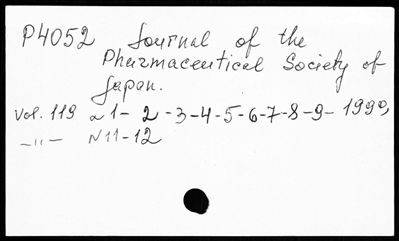 P4052 Journal of the
Pharmaceutical Society of
Japan.
Vol. 119 N 1- 2 -3-4-5-6-7-8-9- 1999,
-"- N 11-12